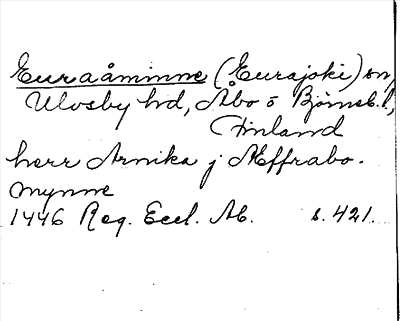 Euraåminne (Eurajoki) sn,
Ulvsby hd, Åbo o Björneb. l,
Finland
herr Arnika j Æffrabo-
mynne
1446 Reg. Eccl. Ab. s. 421.